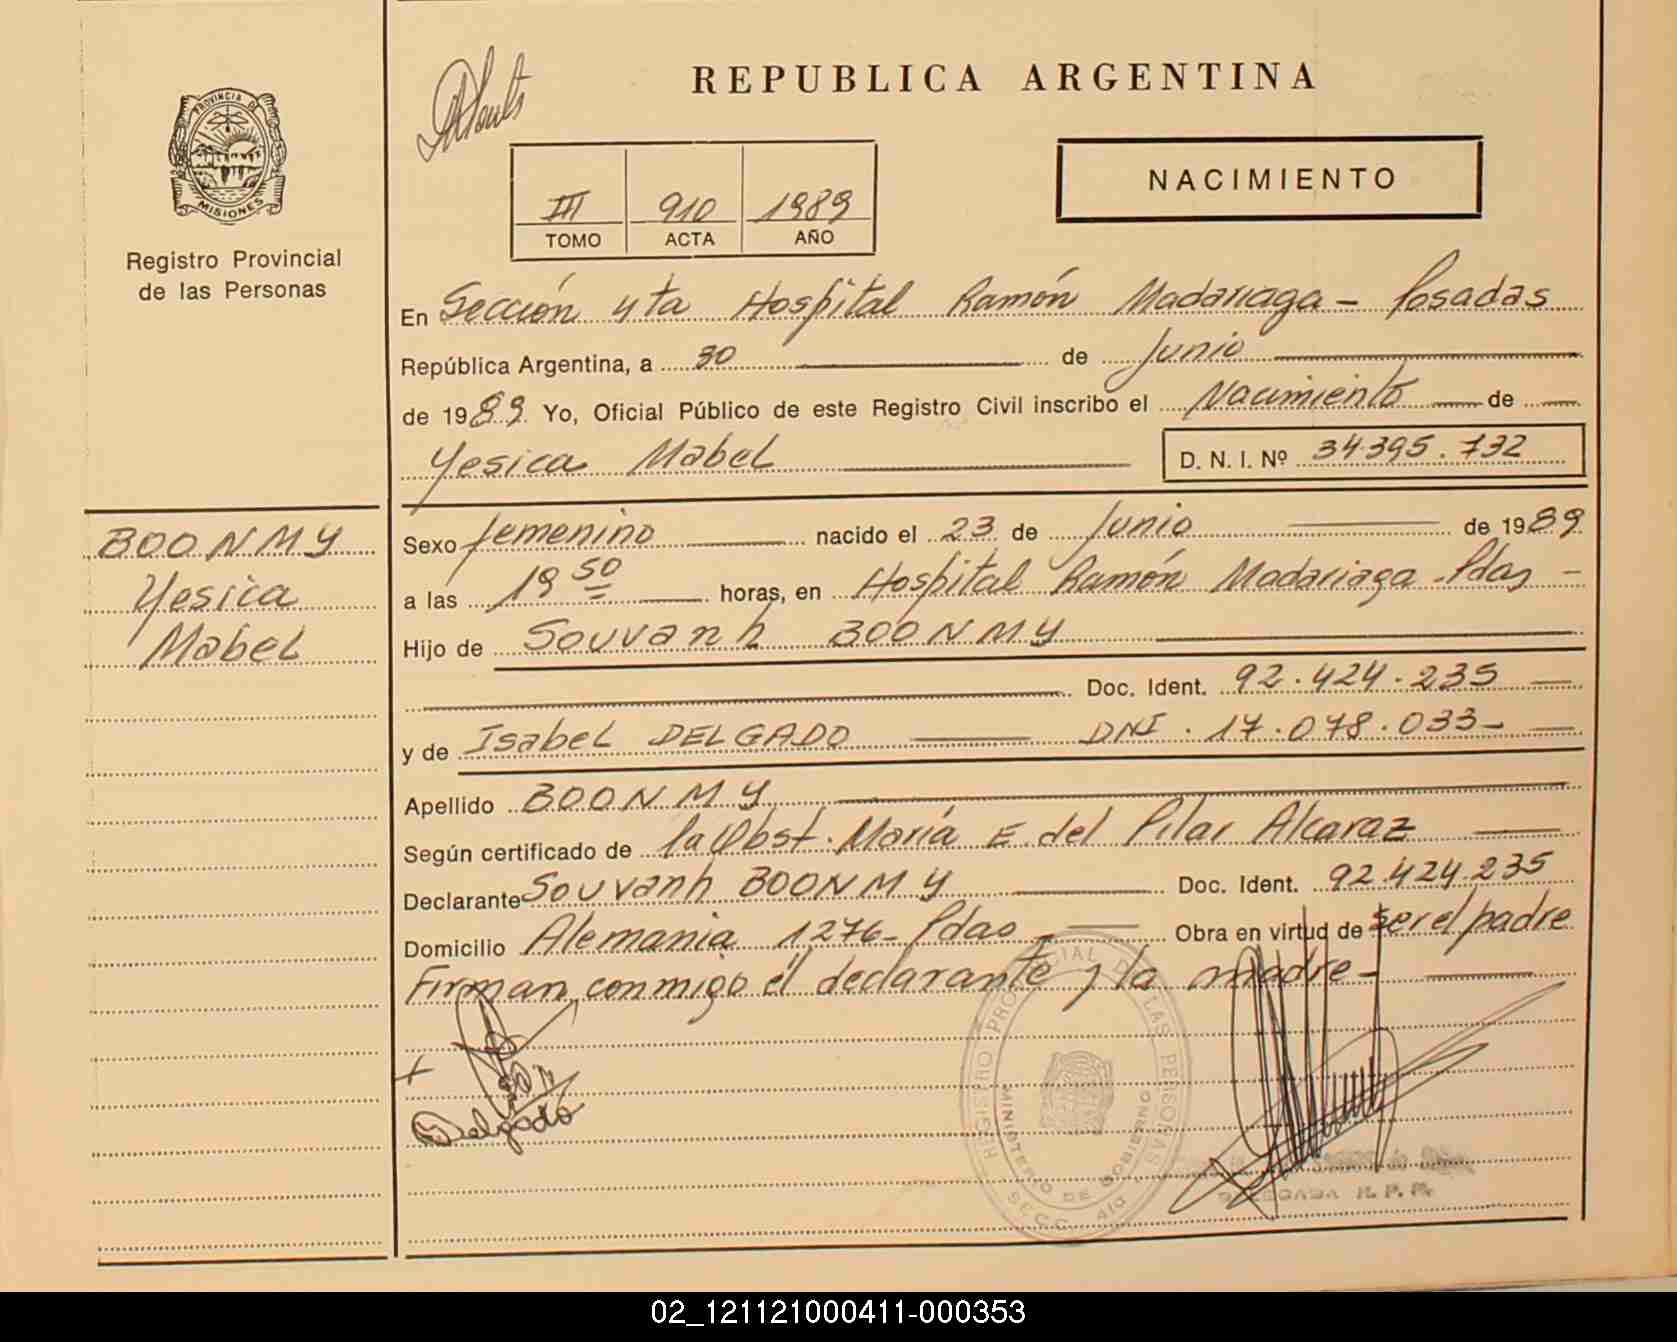 PROVINCIA DE
MISIONES
Registro Provincial
de las Personas
BOONMY
Yesica
Mabel
REPUBLICA ARGENTINA
NACIMIENTO
III 910 1989
TOMO ACTA AÑO
En Sección 4ta Hospital Ramón Madariaga - Posadas
República Argentina, a 30 de Junio
de 1989. Yo, Oficial Público de este Registro Civil inscribo el Nacimiento de
Yesica Mabel D. N. I. Nº 34.395.732
Sexo femenino nacido el 23 de Junio de 1989
a las 19 50 horas, en Hospital Ramón Madariaga - Pdas -
Hijo de Souvanh BOONMY
Doc. Ident. 92.424.235
y de Isabel DELGADO DNI. 17.078.033 -
Apellido BOONMY
Según certificado de la Obst. María E. del Pilar Alcaraz
Declarante Souvanh BOONMY Doc. Ident. 92.424.235
Domicilio Alemania 1276 - Pdas - Obra en virtud de ser el padre
Firman conmigo el declarante y la madre -
Delgado
REGISTRO PROVINCIAL DE LAS PERSONAS
MINISTERIO DE GOBIERNO
SECC. 4ta
DELEGADA R. P. P.
02_121121000411-000353